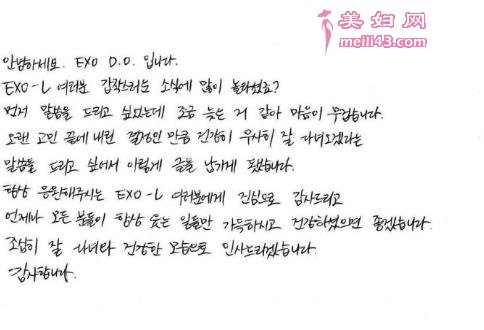 美妇网
meili43.com
안녕하세요. EXO D.O. 입니다.
EXO-L 여러분 갑작스러운 소식에 많이 놀라셨죠?
먼저 말씀을 드리고 싶었는데 조금 늦은 거 같아 마음이 무겁습니다.
오랜 고민 끝에 내린 결정인 만큼 건강히 무사히 잘 다녀오겠다는
말씀을 드리고 싶어서 이렇게 글을 남기게 됐습니다.
항상 응원해주시는 EXO-L 여러분에게 진심으로 감사드리고
언제나 모든 분들이 항상 웃는 일들만 가득하시고 건강하셨으면 좋겠습니다.
조심히 잘 다녀와 건강한 모습으로 인사드리겠습니다.
감사합니다.